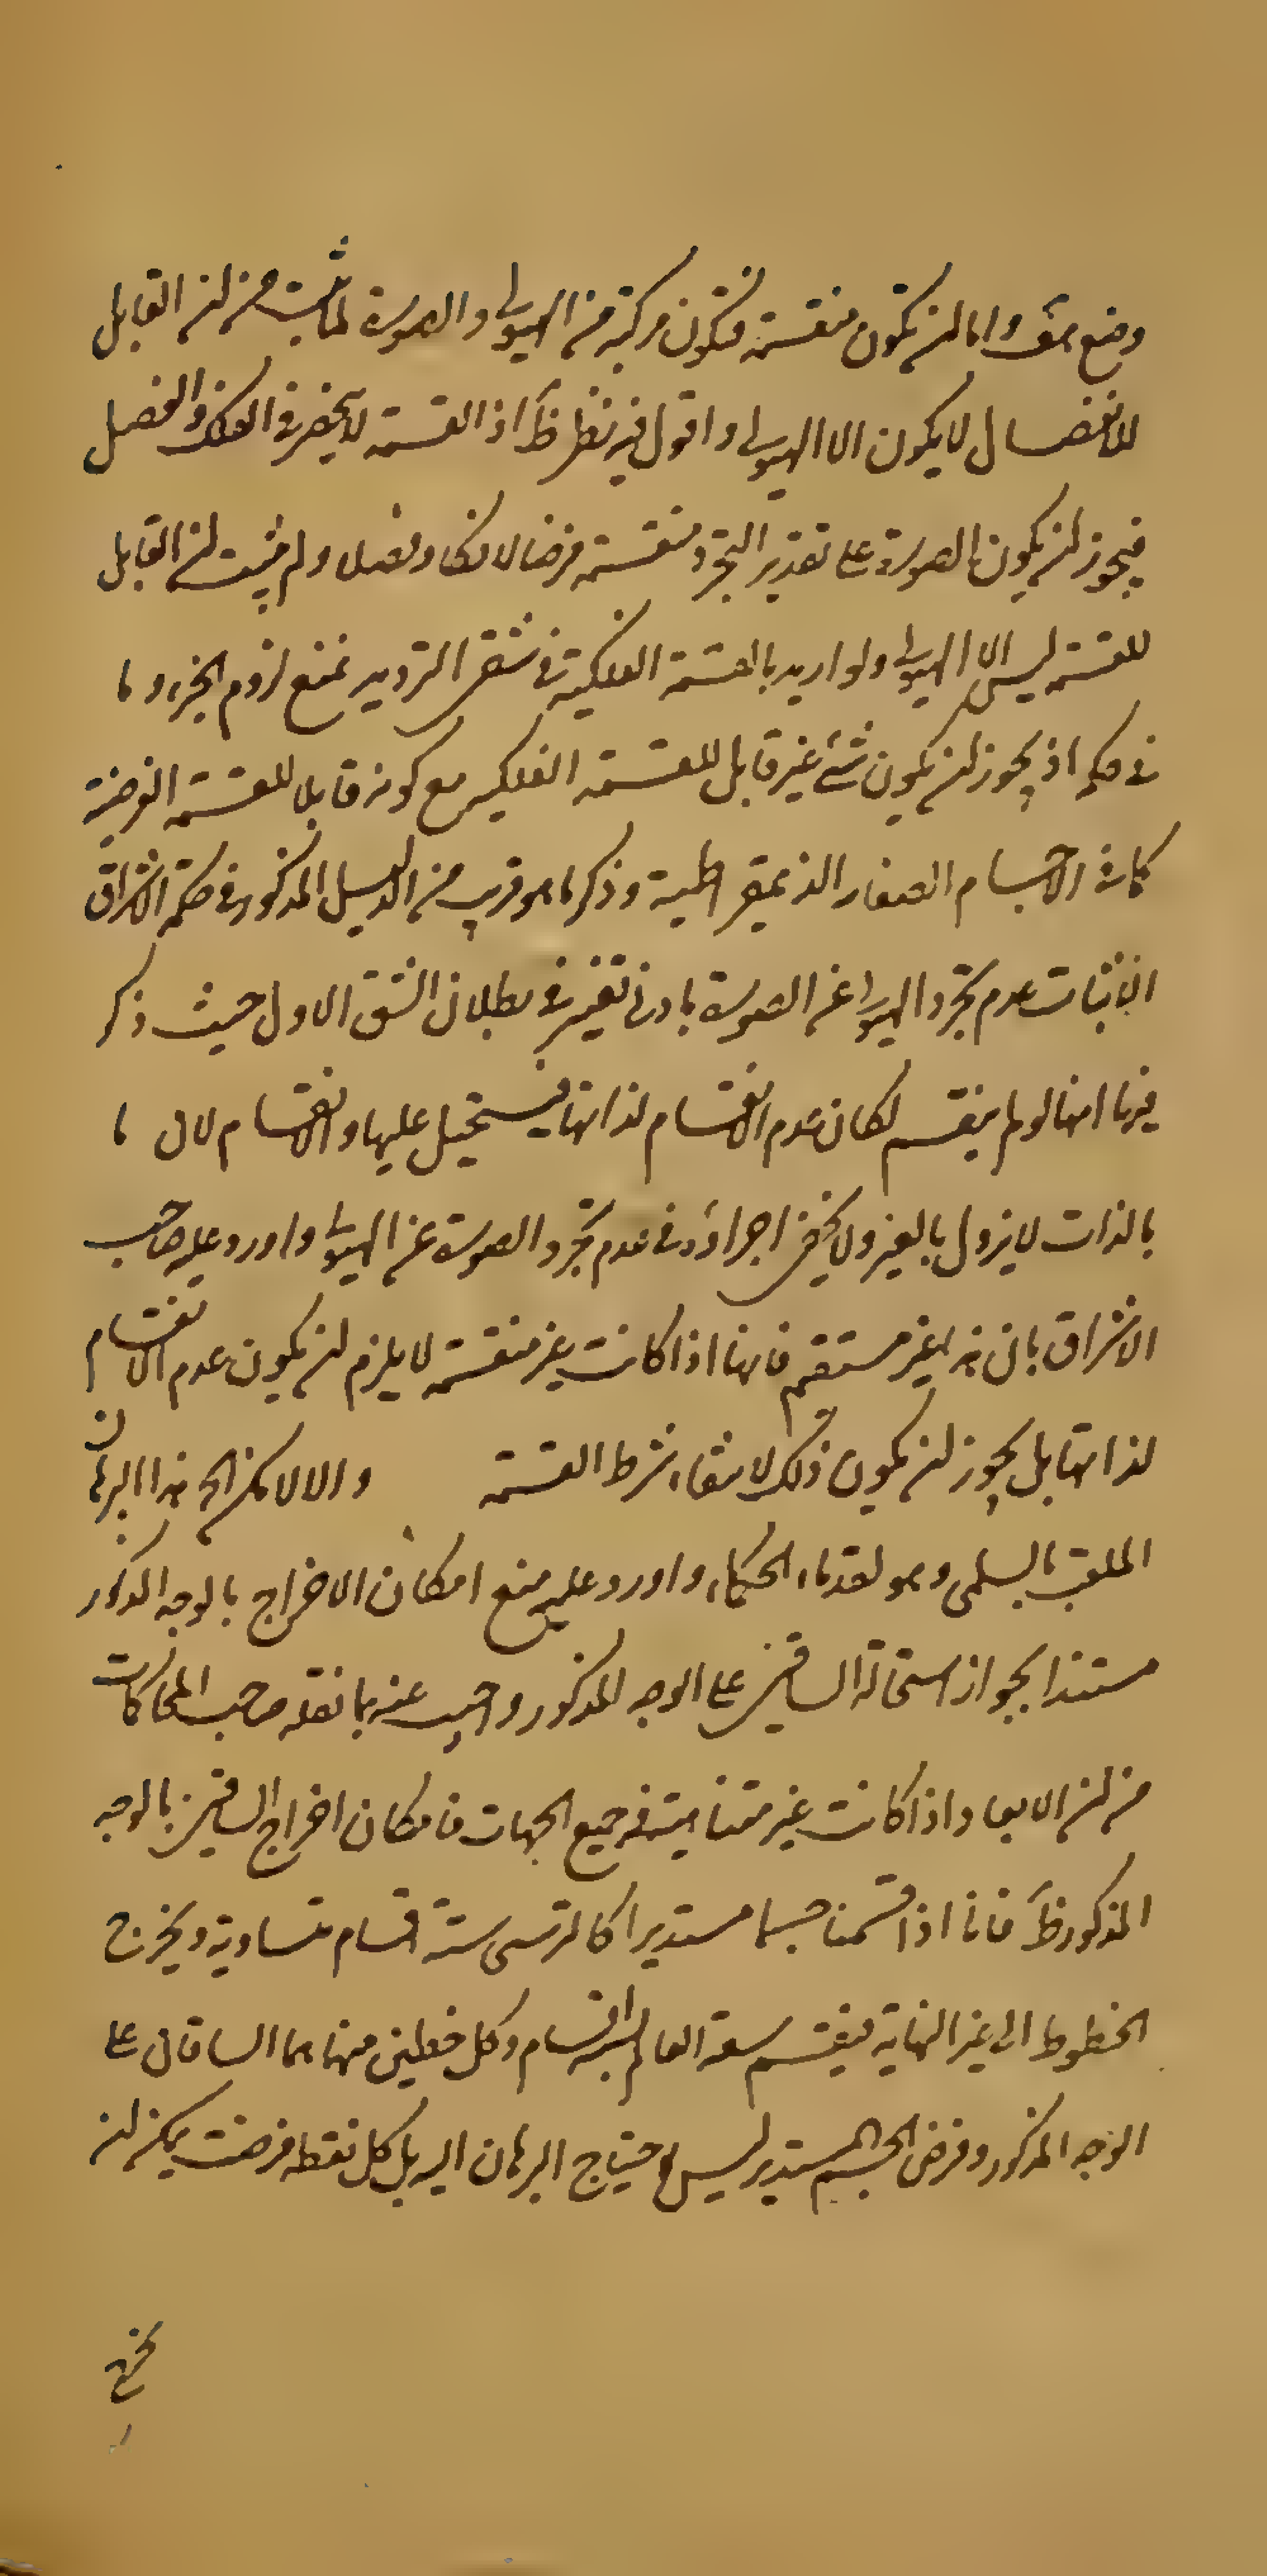 وضع هف واما لن تكون منقسمة فتكون مركبة من الهيولى والصورة لما ثبت من لن القابل
للانفصال لا يكون الا الهيولى واقول فيه نظر ظ اذ القسمة لا ينحصر فى الفك والفصل
فيجوز لن يكون الصورة على تقدير التجرد منقسمة فرضا لا فكا وفصلا ولم يثبت لن القابل
للقسمة ليس الا الهيولى ولو اريد بالقسمة الفكية فى شقى الترديد نمنع لزوم الجزء وما
فى حكمه اذ يجوز لن يكون شئ غير قابل للقسمة الفكية مع كونه قابلا للقسمة الفرضية
كما فى الاجسام الصغار الذيمقراطية وذكر ما هو قريب من الدليل المذكور فى حكمة الاشراق
لاثبات عدم تجرد الهيولى عن الصورة بادنى تغير فى بطلان الشق الاول حيث ذكر
فيها انها لو لم ينقسم لكان عدم الانقسام لذاتها فيستحيل عليها والانقسام لان ما
بالذات لا يزول بالغير ولا يخفى اجراؤه فى عدم تجرد الصورة عن الهيولى واورد عليه صاحب
الاشراق بان هذا غير مستقيم فانها اذا كانت غير منقسمة لا يلزم لن يكون عدم الانقسام
لذاتها بل يجوز لن يكون ذلك لانتفاء شرط القسمة والا لامكن الخ هذا البرهان
الملقب بالسلمى وهو لقدماء الحكماء واورد عليه منع امكان الاخراج بالوجه المذكور
مستندا بجواز استحالة الساقين على الوجه المذكور واجيب عنه بما نقله صاحب المحاكمات
من لن الابعاد اذا كانت غير متناهية فى جميع الجهات فامكان اخراج الساقين بالوجه
المذكور ظ فانا اذا قسمنا جسما مستديرا كالترس ستة اقسام متساوية ويخرج
الخطوط الى غير النهاية فينقسم سعة العالم ستة اقسام وكل خطين منها هما الساقان على
الوجه المذكور وفرض الجسم المستدير ليس لاحتياج البرهان اليه بل كل نقطة فرضت يمكن لن
يخرج